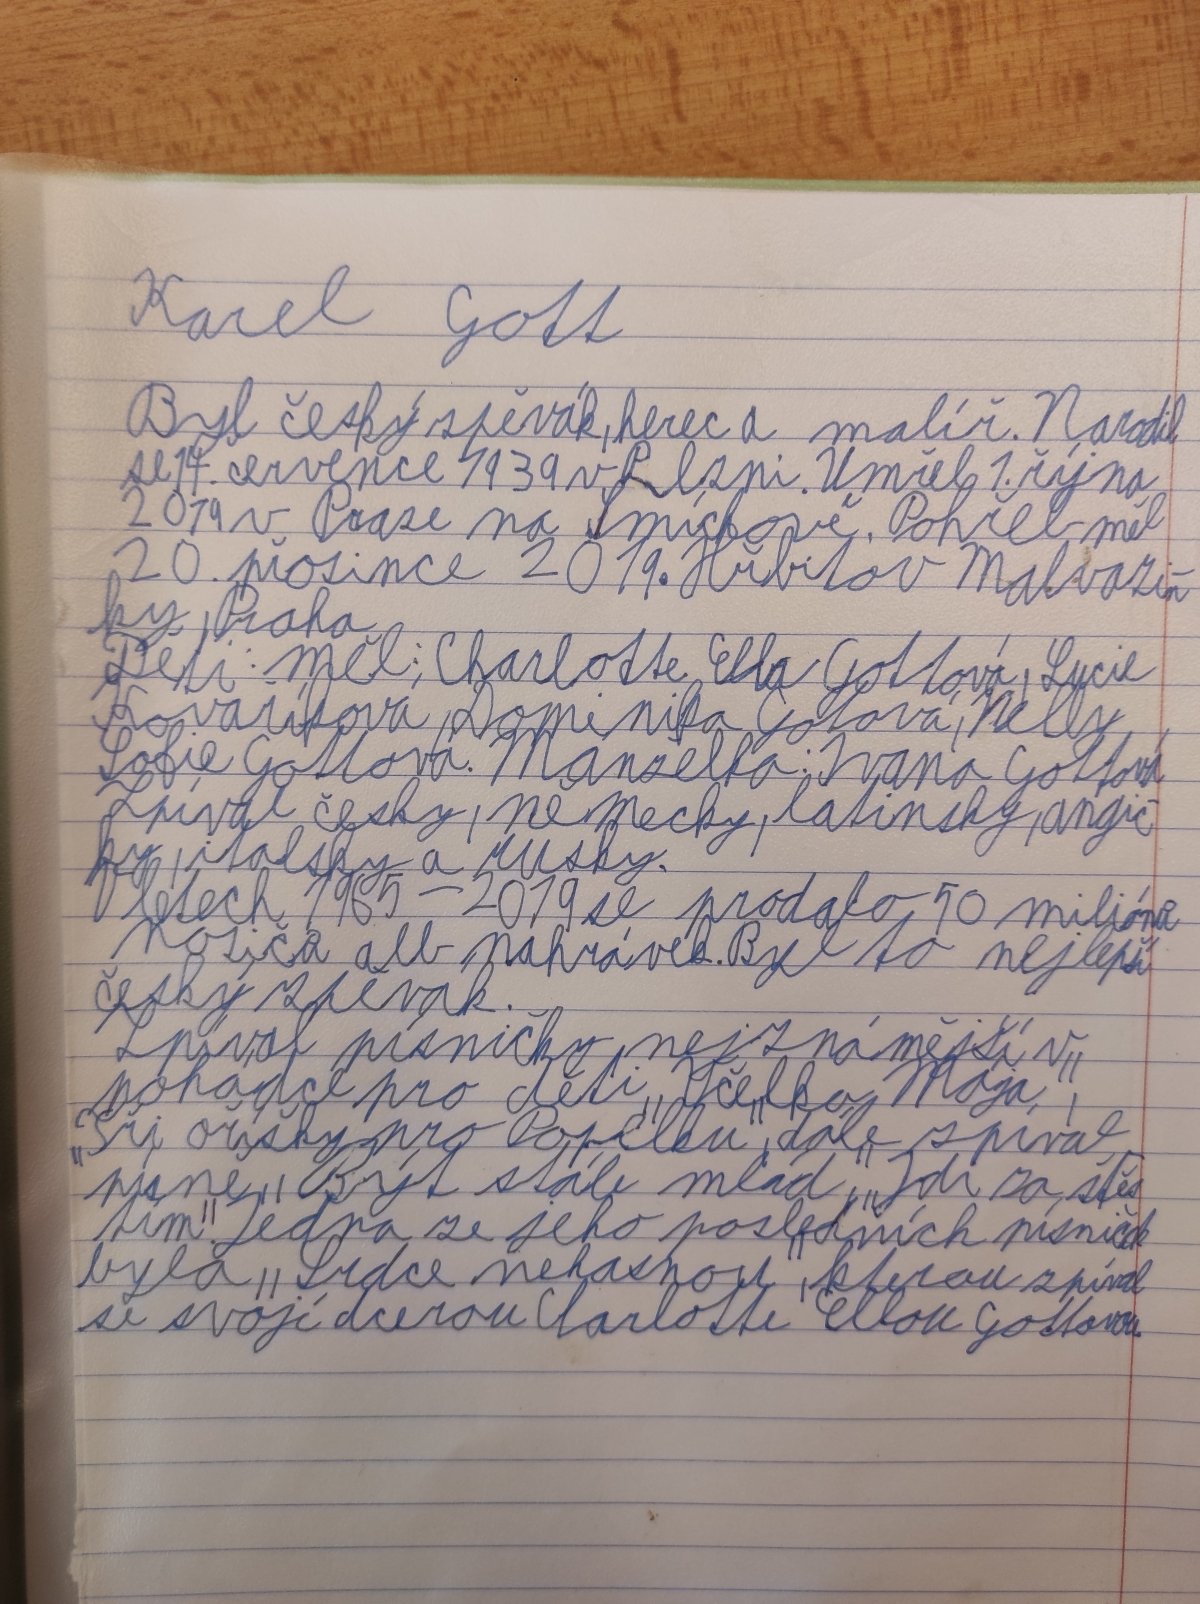 Karel Gott
Byl český zpěvák, herec a malíř. Narodil
se 14. července 1939 v Plzni. Umřel 1. října
2019 v Praze na Smíchově. Pohřeb měl
20. prosince 2019. Hřbitov Malvazin
ky, Praha
Děti: měl: Charlotte Ella Gottová, Lucie
Kovaříková, Dominika Gotová, Nelly
Sofie Gottová. Manželka: Ivana Gottová
Zpíval česky, německy, latinsky, anglič
ky, italsky a rusky.
V letech 1965 – 2019 se prodalo 50 miliónů
nosičů alb nahrávek. Byl to nejlepší
český zpěvák.
Zpíval písničky nejznámější v
pohádce pro děti „Včelka Mája“,
„Tři oříšky pro Popelku“, dále zpíval
písně „Být stále mlád“, „Jdi za štěs
tím“. Jedna ze jeho posledních písniček
byla „Srdce nehasnou“, kterou zpíval
se svojí dcerou Charlotte Ellou Gottovou.